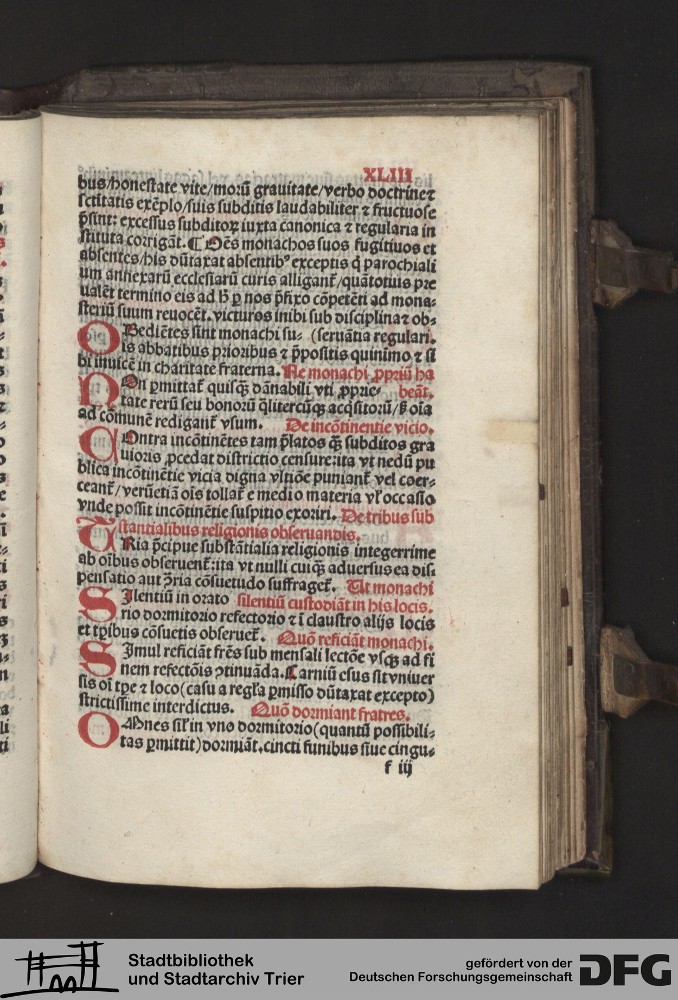 XLIII
bus/honestate vite/morū grauitate/verbo doctrine⁊
sctitatis exēplo/suis subditis laudabiliter ⁊ fructuose
p̄sint: excessus subditoꝝ iuxta canonica ⁊ regularia in
stituta corrigāt. ¶ Oēs monachos suos fugitiuos et
absentes/his dūtaxat absentibꝰ exceptis q̄ parochiali
um annexarū ecclesiarū curis alligant̄/quātotius pre
ualēt termino eis ad h̄ ꝑ nos p̄fixo cōpetēti ad mona-
steriū suum reuocēt. victuros inibi sub disciplina⁊ ob-
OBediētes sint monachi su- (seruātia regulari.
is abbatibus prioribus ⁊ p̄positis quinimo ⁊ si
bi inuicē in charitate fraterna. Ne monachi ꝓpriū ha
NOn ꝑmittat̄ quisꝙ̄ dānabili vti ꝓprie- beāt.
tate rerū seu bonorū q̄litercūꝙ̄ acq̄sitorū/ß oīa
ad comunē redigant̄ vsum. De incōtinentie vicio.
COntra incōtinētes tam p̄latos ꝙ̄ subditos gra
uioris ꝓcedat districtio censure: ita vt nedū pu
blica incōtinētie vicia digna vltiōe puniant̄ vel coer-
ceant̄/verūetiā oīs tollat̄ e medio materia vl̓ occasio
vnde possit incōtinētie suspitio exoriri. De tribus sub
stantialibus religionis obseruandis.
TRia p̄cipue substātialia religionis integerrime
ab oībus obseruent̄: ita vt nulli cuiꝙ̄ aduersus ea dis-
pensatio aut ꝯ̄ria cōsuetudo suffraget̄. Ut monachi
SIlentiū in orato silentiū custodiāt in his locis.
rio dormitorio refectorio ⁊ ī claustro alijs locis
et tꝑibus cōsuetis obseruet̄. Quō reficiāt monachi.
SImul reficiāt fr̄es sub mensali lectōe vsꝙ̄ ad fi
nem refectōis ꝯtinuāda. Carniū esus sit vniuer
sis oī tꝑe ⁊ loco (casu a regl̓a ꝑmisso dūtaxat excepto)
strictissime interdictus. Quō dormiant fratres.
OMnes sil̓ in vno dormitorio (quantū possibili-
tas ꝑmittit) dormiāt. cincti funibus siue cingu-
f iij
Stadtbibliothek
und Stadtarchiv Trier
gefördert von der
Deutschen Forschungsgemeinschaft
DFG